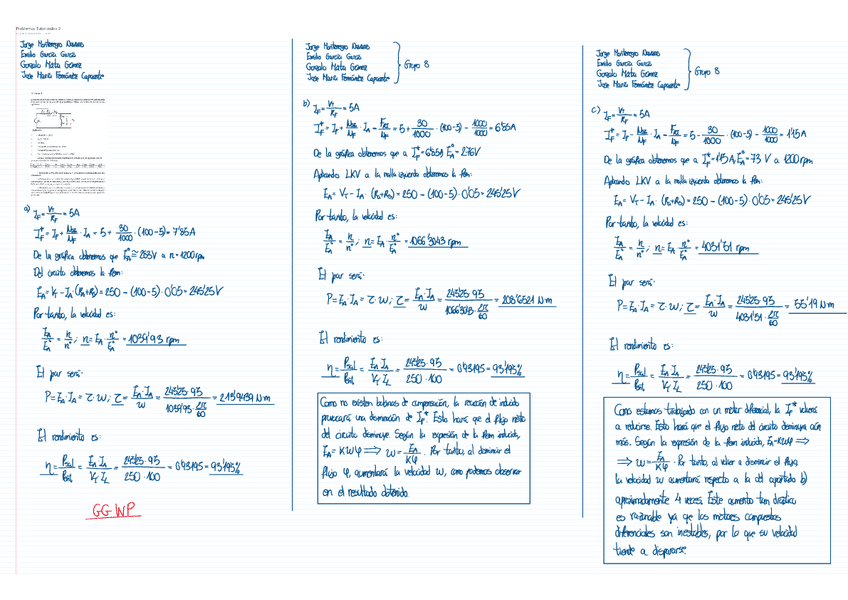 Problemas Tutorizados 2
Jorge Montenegro Navarro
Emilio García García
Gonzalo Mata Gómez
Jose María Fernández
a) I_F = V_T/R_F = 5A
I_F* = I_F + N_SE/N_F · I_A = 5 + 30/1000 · (100-5) = 7'85A
De la gráfica obtenemos que E_A* ≅ 263V a n = 1200 rpm
Del circuito obtenemos la fem:
E_A = V_T - I_A · (R_A+R_S) = 250 - (100-5) · 0'05 = 245'25V
Por tanto, la velocidad es:
E_A/E_A* = n/n* ; n = E_A · n*/E_A* = rpm
El par será:
P = E_A · I_A = τ · ω ; τ = E_A · I_A / ω = 245'25 · 95 / = N·m
El rendimiento es:
η = P_sal/P_ent = E_A I_A / V_T I_L = 245'25 · 95 / 250 · 100 = 0'93195 = 93'195%
GGWP
Jorge Montenegro Navarro
Emilio García García
Gonzalo Mata Gómez
Jose María Fernández
Grupo 8
b) I_F = V_T/R_F = 5A
I_F* = I_F + N_SE/N_F · I_A - F_RI/N_F = 5 + 30/1000 · (100-5) - 1000/1000 = 6'85A
De la gráfica obtenemos que a I_F* = 6'85A E_A* = 276V
Aplicando LKV a la malla izquierda obtenemos la fem:
E_A = V_T - I_A · (R_A+R_S) = 250 - (100-5) · 0'05 = 245'25V
Por tanto, la velocidad es:
E_A/E_A* = n/n* ; n = E_A · n*/E_A* = 1066'3043 rpm
El par será:
P = E_A · I_A = τ · ω ; τ = E_A · I_A / ω = 245'25 · 95 / 1066'3043 · 2π/60 = 208'6521 N·m
El rendimiento es:
η = P_sal/P_ent = E_A I_A / V_T I_L = 245'25 · 95 / 250 · 100 = 0'93195 = 93'195%
Como no existen bobinas de compensación, la reacción de inducido
provocará una disminución de I_F*. Esto hará que el flujo neto
del circuito disminuya. Según la expresión de la fem inducida,
E_A = Kωφ ⟹ ω = E_A/Kφ. Por tanto, al disminuir el
flujo φ, aumentará la velocidad ω, como podemos observar
en el resultado obtenido.
Jorge Montenegro Navarro
Emilio García García
Gonzalo Mata Gómez
Jose María Fernández
Grupo 8
c) I_F = V_T/R_F = 5A
I_F* = I_F - N_SE/N_F · I_A - F_RI/N_F = 5 - 30/1000 · (100-5) - 1000/1000 = 1'15A
De la gráfica obtenemos que a I_F* = 1'15A, E_A* = 73 V a 1200 rpm
Aplicando LKV a la malla izquierda obtenemos la fem:
E_A = V_T - I_A · (R_A+R_S) = 250 - (100-5) · 0'05 = 245'25V
Por tanto, la velocidad es:
E_A/E_A* = n/n* ; n = E_A · n*/E_A* = 4031'51 rpm
El par será:
P = E_A · I_A = τ · ω ; τ = E_A · I_A / ω = 245'25 · 95 / 4031'51 · 2π/60 = 55'19 N·m
El rendimiento es:
η = P_sal/P_ent = E_A I_A / V_T I_L = 245'25 · 95 / 250 · 100 = 0'93195 = 93'195%
Como estamos trabajando con un motor diferencial, la I_F* volverá
a reducirse. Esto hará que el flujo neto del circuito disminuya aún
más. Según la expresión de la fem inducida, E_A = Kωφ ⟹
⟹ ω = E_A/Kφ. Por tanto, al volver a disminuir el flujo,
la velocidad ω aumentará respecto a la del apartado b)
aproximadamente 4 veces. Este aumento tan drástico
es razonable ya que los motores compuestos
diferenciales son inestables, por lo que su velocidad
tiende a dispararse.